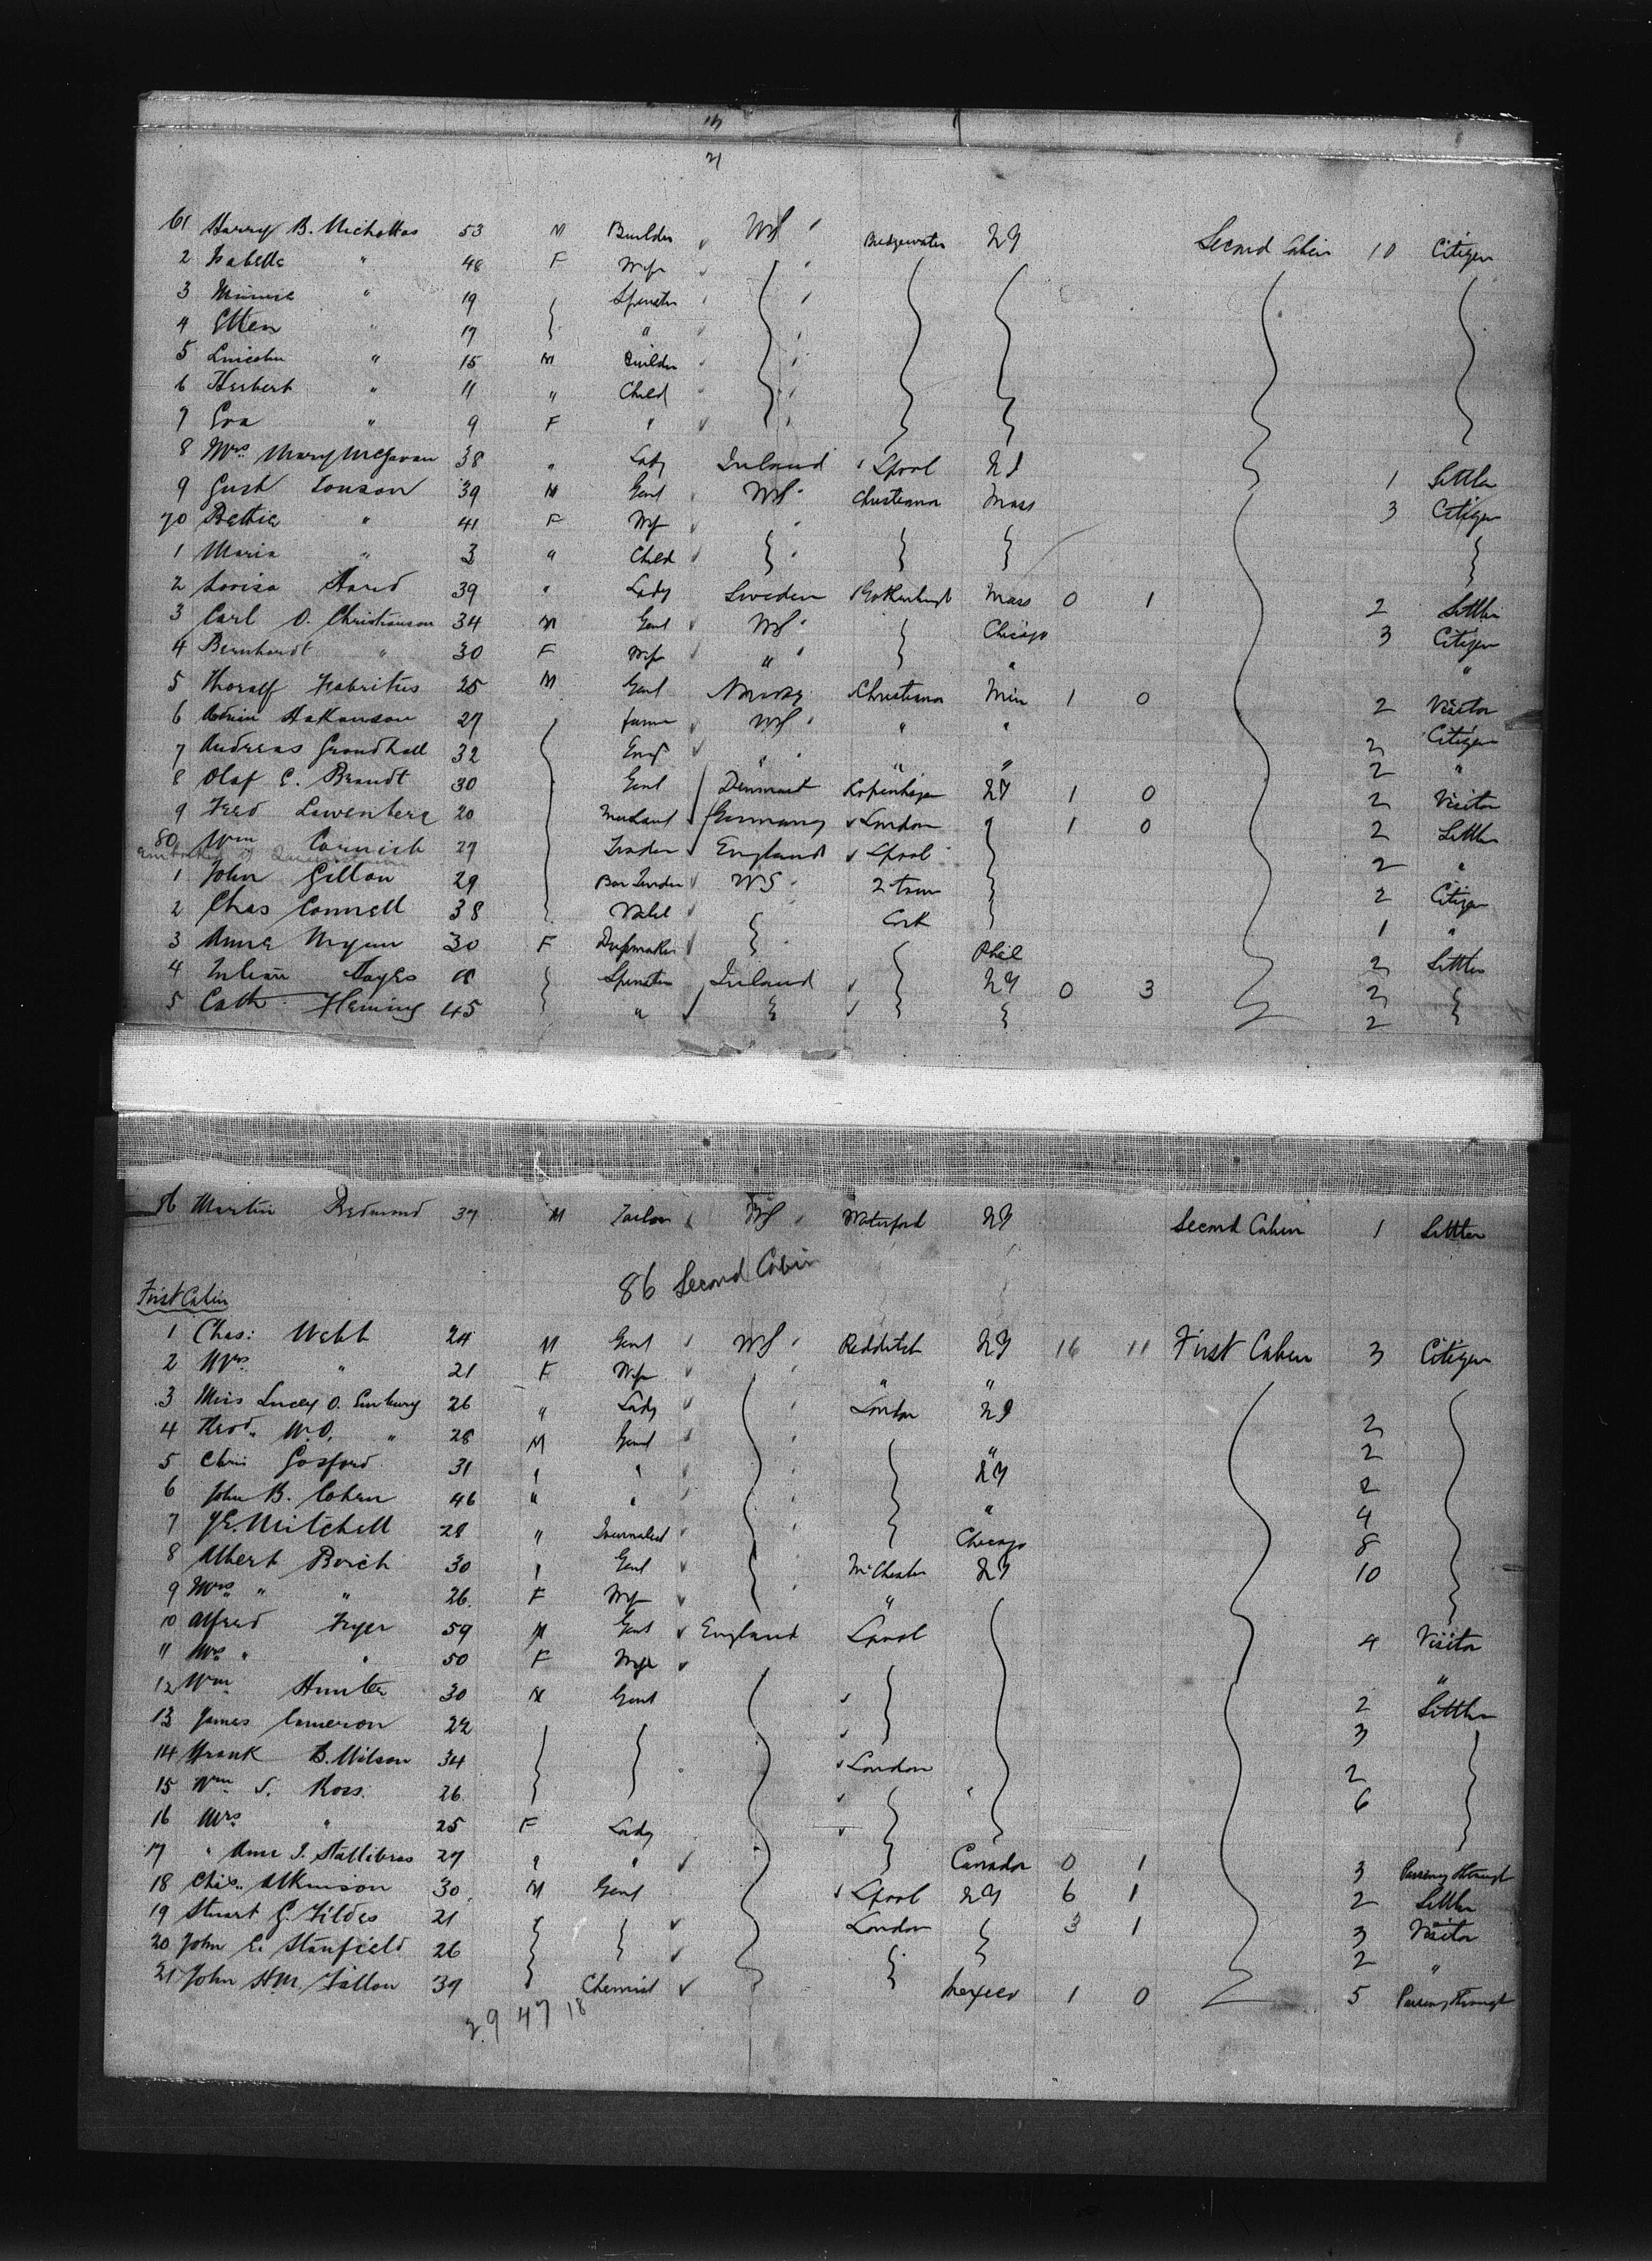 21
61 Harry B. Nicholtas 53 M Builder US Bridgewater NY Second Cabin 10 Citizen
2 Isabella " 48 F Wife
3 Minnie " 19 Spinster
4 Ellen " 17 "
5 Lincoln " 15 M Builder
6 Herbert " 11 " Child
7 Eva " 9 F "
8 Mrs Mary McGavan 38 " Lady Ireland Lpool NY 1 Settler
9 Gust Tonson 39 M Gent US Christiana Mass 3 Citizen
70 Bethie " 41 F Wife
1 Maria " 3 " Child
2 Lovisa 39 " Lady Sweden Gothenburg Mass 0 1 2 Settler
3 Carl O. Christianson 34 M Gent US Chicago 3 Citizen
4 Bernhardt " 30 F Wife " " "
5 Thoralf Fabritius 25 M Gent Norway Christiana Min 1 0 2 Visitor
6 Hakanson 27 farmer US " " 2 Citizen
7 Andreas Grondhall 32 " " " 2 "
8 Olaf E. Brandt 30 Gent Denmark Kopenhagen NY 1 0 2 Visitor
9 Fred Lowenberg 20 Merchant Germany London " 1 0 2 Settler
80 Wm Cornish 27 Trader England Lpool 2 "
Embarked at Queenstown
1 John Gillon 29 Bar Tender US 2 town 2 Citizen
2 Chas Connell 38 Valet Cork 1 "
3 Anne 30 F Dressmaker Phil 2 Settler
4 Hayes 18 Spinster Ireland NY 0 3 2
5 Cath. Fleming 45 " 2
86 Martin Redmond 37 M Tailor US Waterford NY Second Cabin 1 Settler
86 Second Cabin
First Cabin
1 Chas: Webb 24 M Gent US Redditch NY 16 11 First Cabin 3 Citizen
2 Mrs " 21 F Wife " "
3 Miss Lucey O. 26 " Lady London NY 2
4 W.O. " 28 M Gent " 2
5 Chris Gosford 31 " " NY 2
6 John B. Cohen 46 " " " 4
7 J.E. Mitchell 28 " Journalist Chicago 8
8 Albert Borch 30 " Gent McChester NY 10
9 Mrs " " 26 F Wife "
10 Alfred Fryer 59 M Gent England Lpool 4 Visitor
11 Mrs " " 50 F Wife "
12 Wm Hunter 30 M Gent 2 Settler
13 James Cameron 22 3
14 Frank B. Wilson 34 London 2
15 Wm S. Ross 26 6
16 Mrs " 25 F Lady
17 " Anne J. Stallibras 27 " " Canada 0 1 3 Passing through
18 Chas. Atkinson 30 M Gent Lpool NY 6 1 2 Settler
19 Stuart G. Fildes 21 London 3 1 3 Visitor
20 John E. Stanfield 26 2 "
21 John H.M. Fallon 39 Chemist Mexico 1 0 5 Passing through
29 47 18